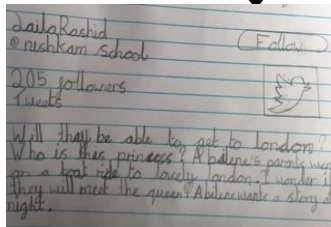 Laila Rashid
@nishkam school
Follow
205 followers
Tweets
Will thay be able to get to london?
Who is this princess? Abilene's parents went
on a boat ride to lovely london. I wonder if
they will meet the queen? Abilene wants a story at
night.